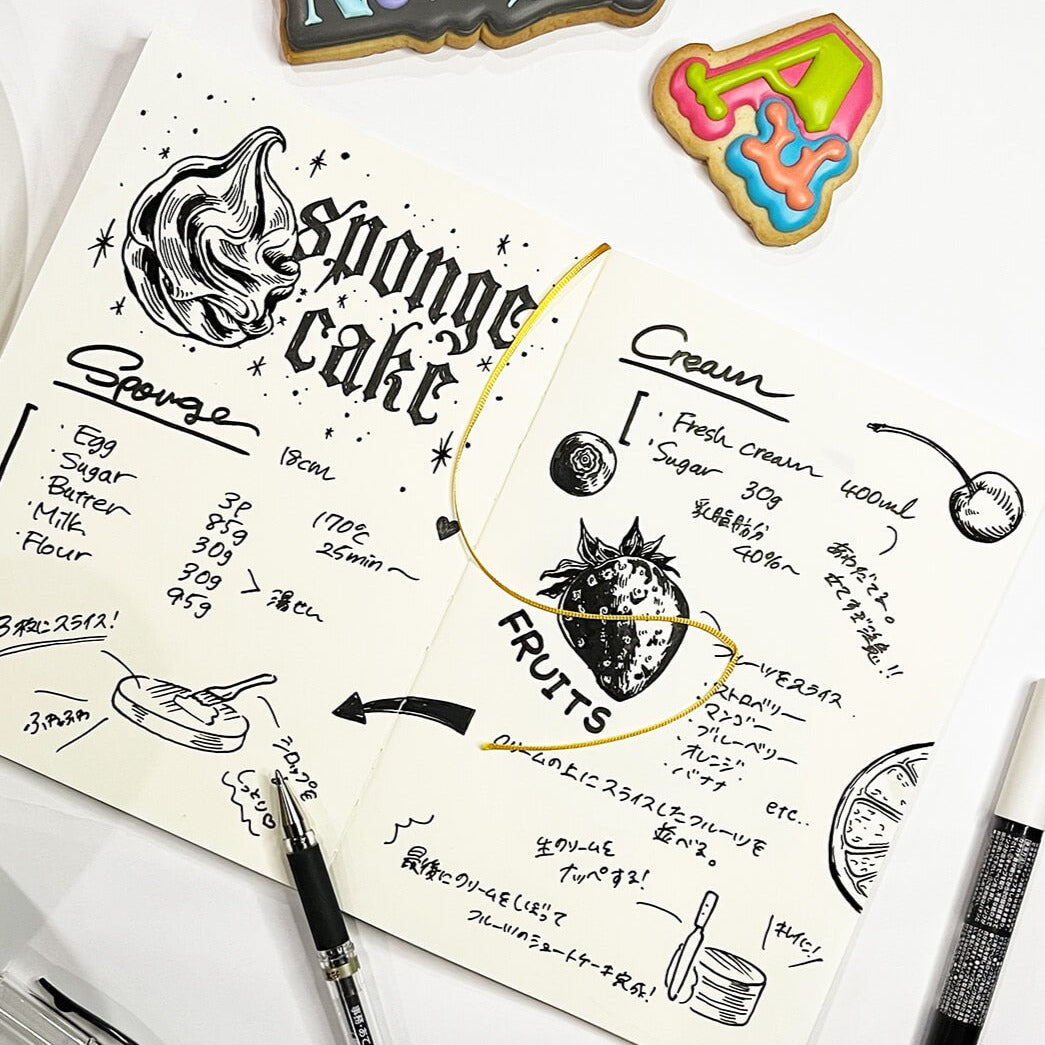 sponge
cake
Sponge
・Egg 3p
・Sugar 85g
・Butter 30g
・Milk 30g
・Flour 95g
18cm
170℃
25min〜
> 湯せん
3枚にスライス!
ふわふわ
シロップを
しっとり♡
Cream
・Fresh cream 400ml
・Sugar 30g
乳脂肪分
40%〜
あわだてる。
立てすぎ注意!!
FRUITS
フルーツをスライス
・ストロベリー
・マンゴー
・ブルーベリー
・オレンジ
・バナナ
etc..
クリームの上にスライスしたフルーツを
並べる。
生クリームを
ナッペする!
キレイに!
最後にクリームをしぼって
フルーツのショートケーキ完成!